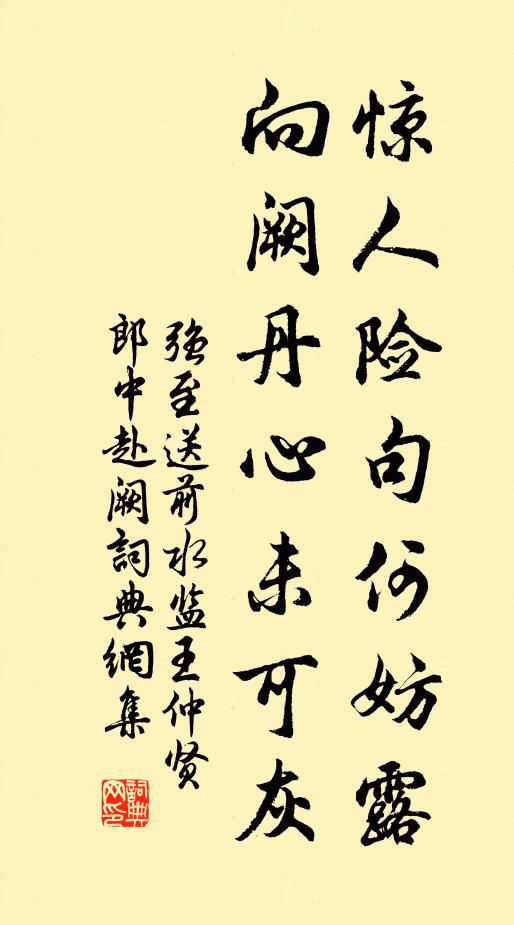 惊人险句何妨露
向阙丹心未可灰
强至送前水监王仲贤
郎中赴阙詞典網集
詞典
网印